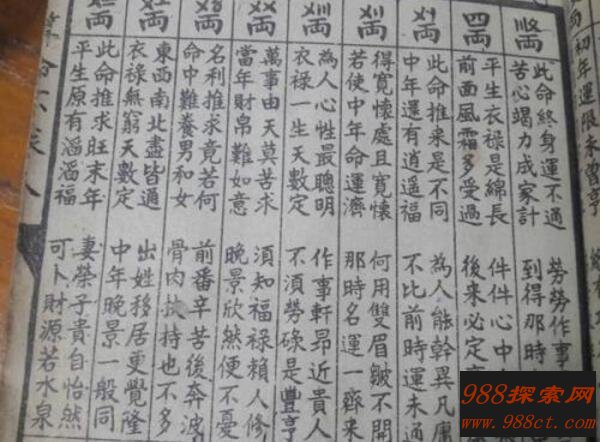 初年運限未曾亨
此命終身運不通
勞勞作事
苦心竭力成家計
到得那時
四両
平生衣祿是綿長
件件心中
前面風霜多受過
後来必定
〤〡両
此命推来是不同
為人能幹異凡庸
中年還有逍遥福
不比前時運未通
〤〢両
得寬懷處且寬懷
何用雙眉皺不開
若使中年命運濟
那時名運一齊来
〤〣両
為人心性最聰明
作事軒昻近貴人
衣祿一生天數定
不須勞碌是豐亨
〤〤両
萬事由天莫苦求
須知福祿賴人修
當年財帛難如意
晚景欣然便不憂
両
名利推求竟若何
前番辛苦後奔波
命中難養男和女
骨肉扶持也不多
両
東西南北盡皆通
出姓移居更覺隆
衣祿無窮天數定
中年晚景一般同
両
此命推求旺末年
妻榮子貴自怡然
平生原有滔滔福
可卜財源若水泉
算命不求人
988探索网
www.988ct.com